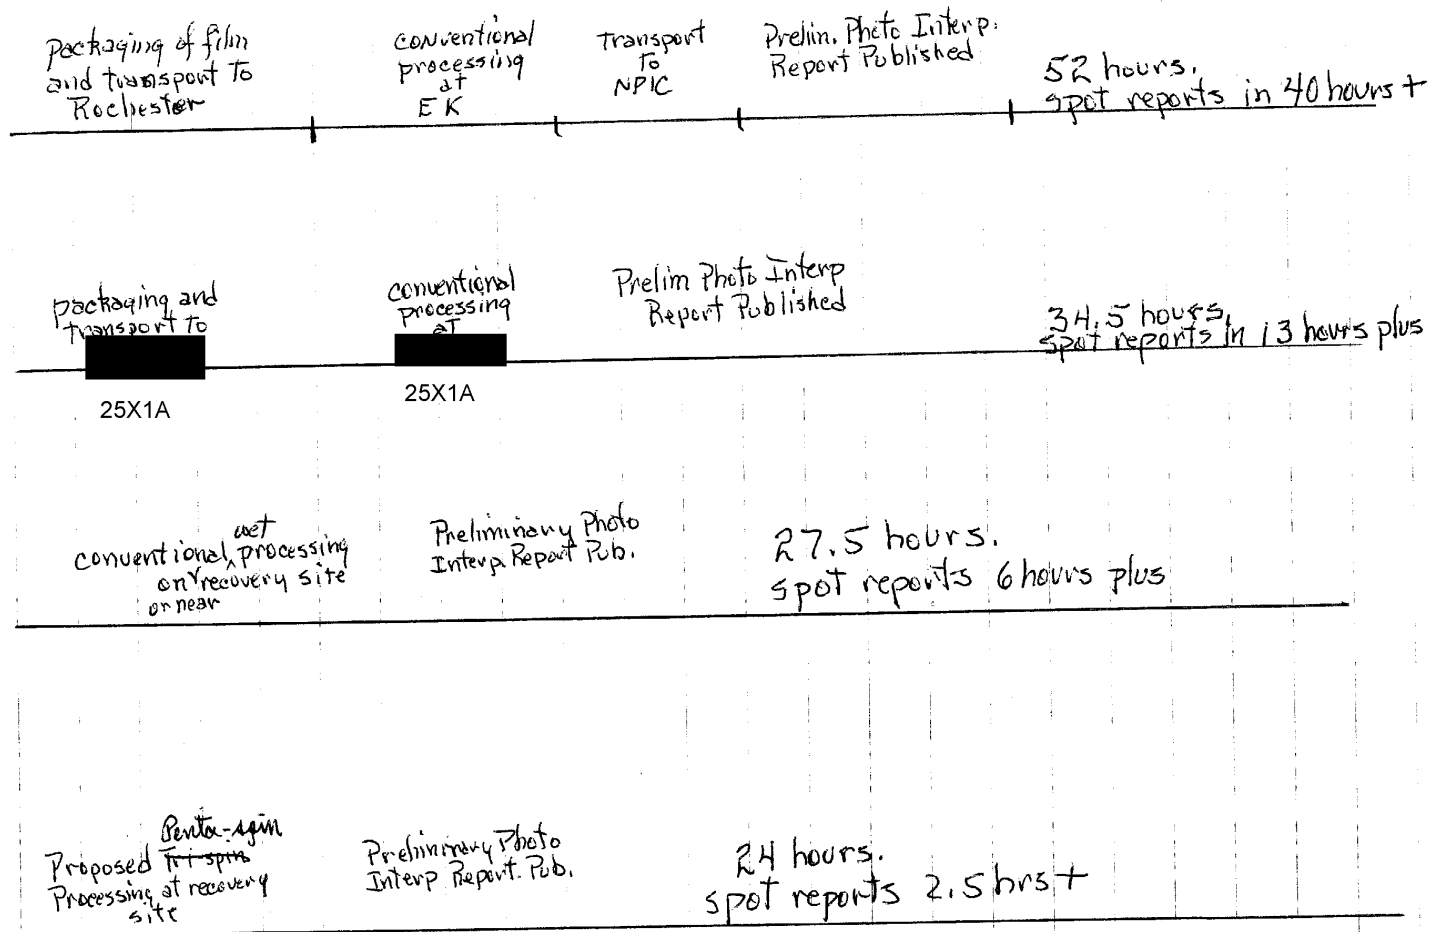 packaging of film
and transport to
Rochester
conventional
processing
at
EK
Transport
to
NPIC
Prelim. Photo Interp.
Report Published
52 hours.
spot reports in 40 hours +
packaging and
transport to
25X1A
conventional
processing
at
25X1A
Prelim Photo Interp
Report Published
34.5 hours.
spot reports in 13 hours plus
conventional wet processing
on or near recovery site
Preliminary Photo
Interp. Report Pub.
27.5 hours.
spot reports 6 hours plus
Proposed Tri-spin Penta-spin
Processing at recovery
site
Preliminary Photo
Interp Report. Pub.
24 hours.
spot reports 2.5 hrs +